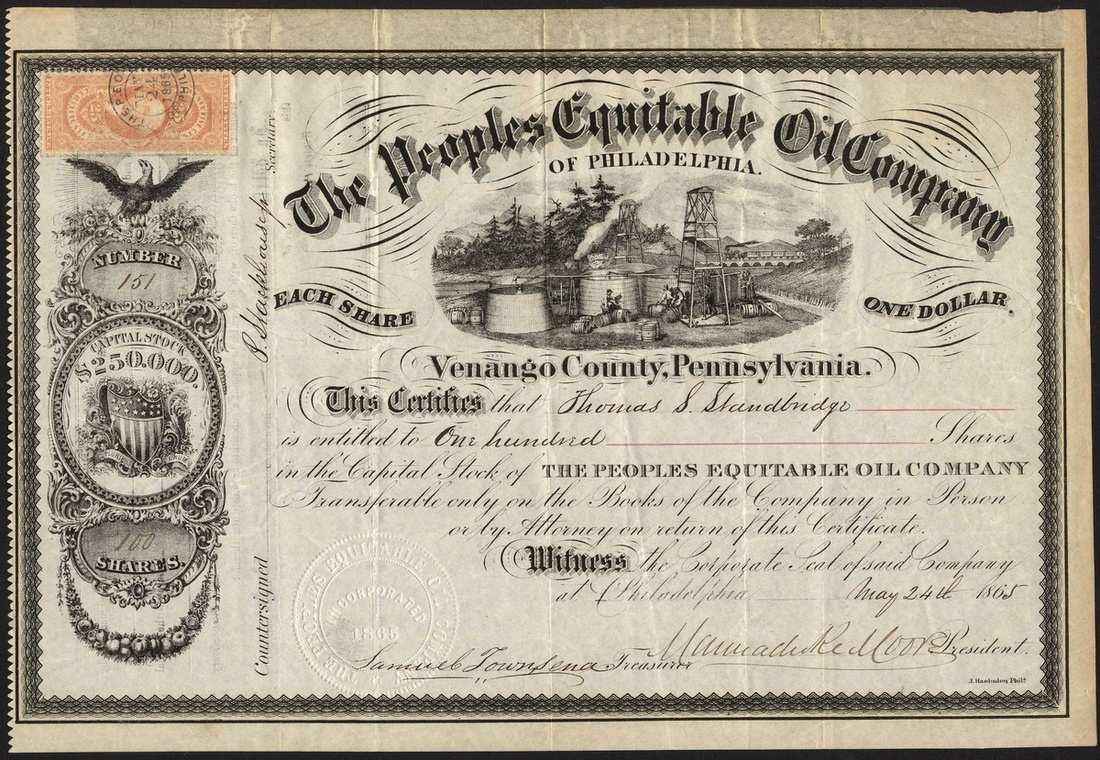 The Peoples Equitable Oil Company
OF PHILADELPHIA.
EACH SHARE
ONE DOLLAR.
Venango County, Pennsylvania.
This Certifies that Thomas S. Standbridge
is entitled to One hundred Shares
in the Capital Stock of THE PEOPLES EQUITABLE OIL COMPANY
Transferable only on the Books of the Company in Person
or by Attorney on return of this Certificate.
Witness the Corporate Seal of said Company
at Philadelphia May 24th 1865
Marmaduke Moore President.
Samuel Townsend Treasurer
J. Haehnlen Phila
NUMBER
151
CAPITAL STOCK
$250.000.
100
SHARES.
Countersigned
Secretary.
THE PEOPLES EQUITABLE OIL COMPANY
INCORPORATED
1865
25